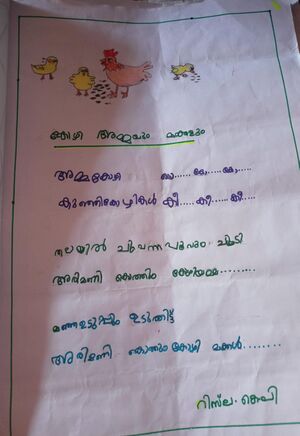 കോഴി അമ്മയും മക്കളും
അമ്മകോഴി
കുഞ്ഞികോഴികൾ കീ..... കീ..... കീ.....
തലയിൽ ചുവന്നപൂവും ചൂടി
അരിമണി കൊത്തും കോഴിയമ്മ.........
മഞ്ഞഉടുപ്പും ഉടുത്തിട്ട്
അരിമണി കൊത്തും കോഴി മക്കൾ........
റിസ്‌ല. കെപി